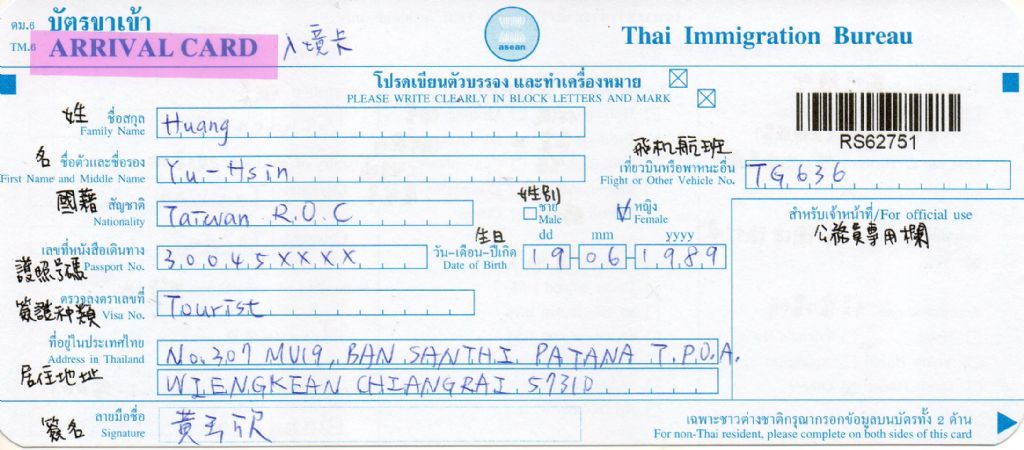 ตม.6 บัตรขาเข้า
TM.6 ARRIVAL CARD 入境卡
asean
Thai Immigration Bureau
โปรดเขียนตัวบรรจง และทำเครื่องหมาย ☒
PLEASE WRITE CLEARLY IN BLOCK LETTERS AND MARK ☒
RS62751
姓 ชื่อสกุล
Family Name Huang
名 ชื่อตัวและชื่อรอง
First Name and Middle Name Yu-Hsin
飛机航班
เที่ยวบินหรือพาหนะอื่น
Flight or Other Vehicle No. TG636
國籍 สัญชาติ
Nationality Taiwan R.O.C
性別
ชาย
Male
หญิง
Female
สำหรับเจ้าหน้าที่/For official use
公務員專用欄
護照号碼 เลขที่หนังสือเดินทาง
Passport No. 30045XXXX
生日 วัน-เดือน-ปีเกิด
Date of Birth
dd mm yyyy
19-06-1989
簽證种類 ตรวจลงตราเลขที่
Visa No. Tourist
ที่อยู่ในประเทศไทย
Address in Thailand
居住地址
No.307 MU19, BAN SANTHI PATANA T.P.O.A.
WIENGKEAN CHIANGRAI 57310
簽名 ลายมือชื่อ
Signature 黃玉欣
เฉพาะชาวต่างชาติกรุณากรอกข้อมูลบนบัตรทั้ง 2 ด้าน
For non-Thai resident, please complete on both sides of this card